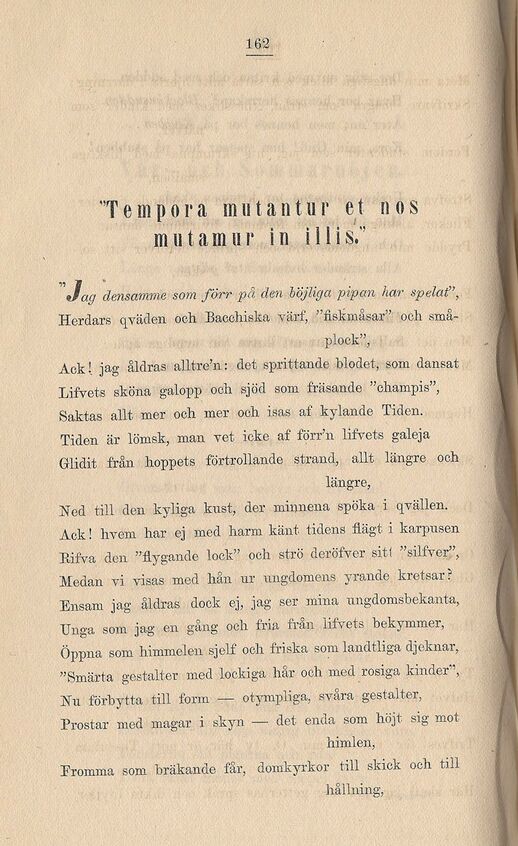 162
"Tempora mutantur et nos
mutamur in illis."
"Jag densamme som förr på den böjliga pipan har spelat",
Herdars qväden och Bacchiska värf, "fiskmåsar" och små-
plock",
Ack! jag åldras alltre'n: det sprittande blodet, som dansat
Lifvets sköna galopp och sjöd som fräsande "champis",
Saktas allt mer och mer och isas af kylande Tiden.
Tiden är lömsk, man vet icke af förr'n lifvets galeja
Glidit från hoppets förtrollande strand, allt längre och
längre,
Ned till den kyliga kust, der minnena spöka i qvällen.
Ack! hvem har ej med harm känt tidens flägt i karpusen
Rifva den "flygande lock" och strö deröfver sitt "silfver",
Medan vi visas med hån ur ungdomens yrande kretsar?
Ensam jag åldras dock ej, jag ser mina ungdomsbekanta,
Unga som jag en gång och fria från lifvets bekymmer,
Öppna som himmelen sjelf och friska som landtliga djeknar,
"Smärta gestalter med lockiga hår och med rosiga kinder",
Nu förbytta till form — otympliga, svåra gestalter,
Prostar med magar i skyn — det enda som höjt sig mot
himlen,
Fromma som bräkande får, domkyrkor till skick och till
hållning,